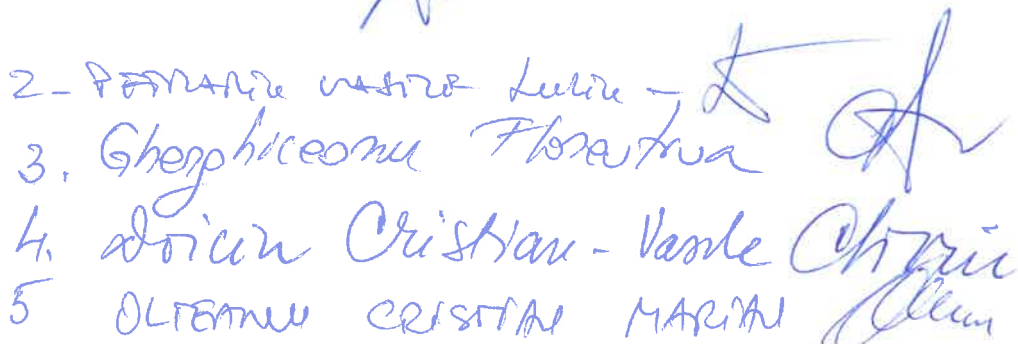 2- PETRARIU VASILE Iuliu -
3. Gherghiceanu Florentina
4. Doicin Cristian-Vasile
5 OLTEANU CRISTIAN MARIAN